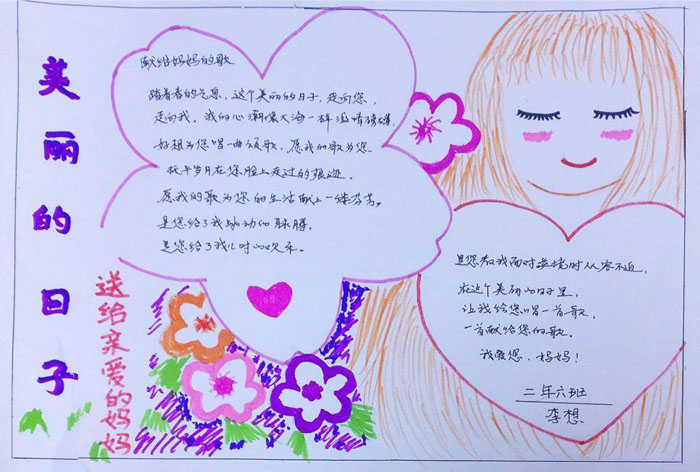 美丽的日子
送给亲爱的妈妈
献给妈妈的歌
踏着春的气息,这个美丽的日子,走向您,
走向我,我的心潮像大海一样激情磅礴.
好想为您唱一曲颂歌,愿我的歌为您
抚平岁月在您脸上走过的痕迹.
愿我的歌为您的生活献上一缕芬芳,
是您给了我跳动的脉搏,
是您给了我儿时的欢乐.
是您教我面对 时从容不迫,
在这个美丽的日子里,
让我给您唱一首歌,
一首献给您的歌.
我爱您,妈妈!
二年六班
李想